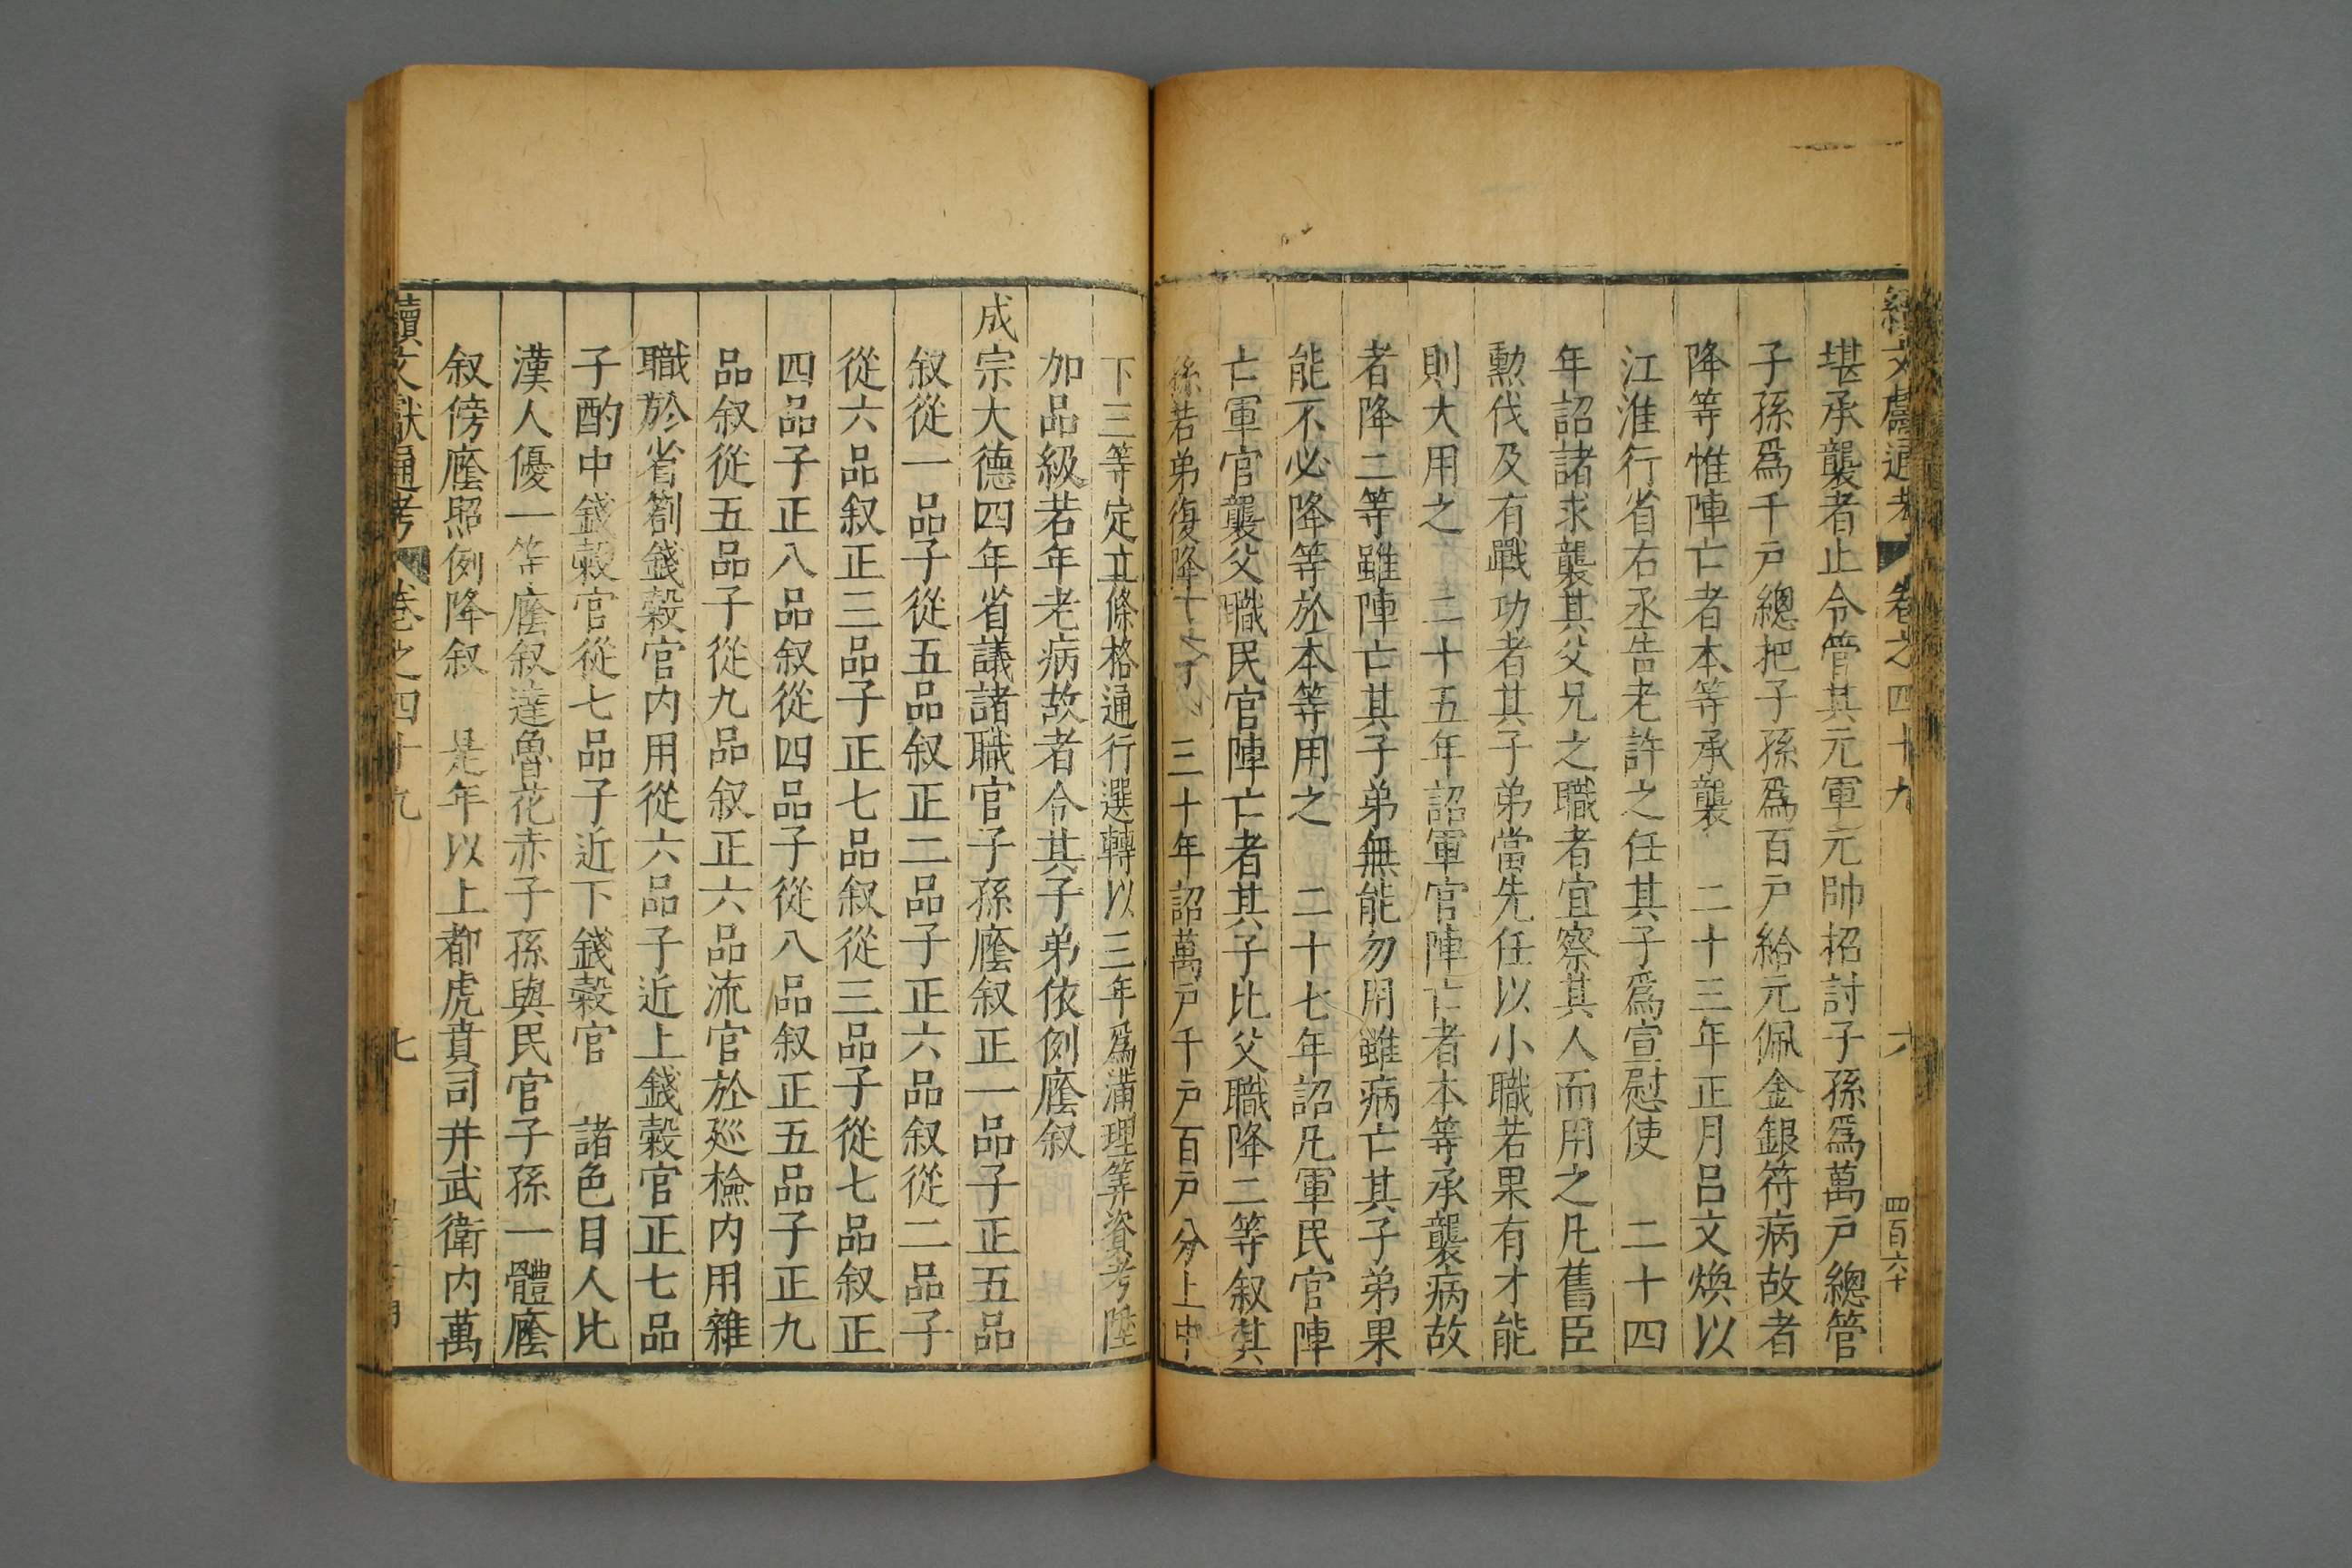 續文獻通考 卷之四十九 六 四百六十
堪承襲者止令管其元軍元帥招討子孫爲萬戸總管
子孫爲千戸總把子孫爲百戸給元佩金銀符病故者
降等惟陣亡者本等承襲 二十三年正月呂文煥以
江淮行省右丞告老許之任其子爲宣慰使 二十四
年詔諸求襲其父兄之職者宜察其人而用之凡舊臣
勲伐及有戰功者其子弟當先任以小職若果有才能
則大用之 二十五年詔軍官陣亡者本等承襲病故
者降二等雖陣亡其子弟無能勿用雖病亡其子弟果
能不必降等於本等用之 二十七年詔凡軍民官陣
亡軍官襲父職民官陣亡者其子比父職降二等叙其
孫若弟復降 三十年詔萬戸千戸百戸分上中
下三等定立條格通行選轉以三年爲滿理筭資考陞
加品級若年老病故者令其子弟依例廕叙
成宗大德四年省議諸職官子孫廕叙正一品子正五品
叙從一品子從五品叙正二品子正六品叙從二品子
從六品叙正三品子正七品叙從三品子從七品叙正
四品子正八品叙從四品子從八品叙正五品子正九
品叙從五品子從九品叙正六品流官於廵檢内用雜
職於省劄錢糓官内用從六品子近上錢糓官正七品
子酌中錢糓官從七品子近下錢糓官 諸色目人比
漢人優一等廕叙達魯花赤子孫與民官子孫一體廕
叙傍廕照例降叙 是年以上都虎賁司并武衛内萬
續文獻通考 卷之四十九 七